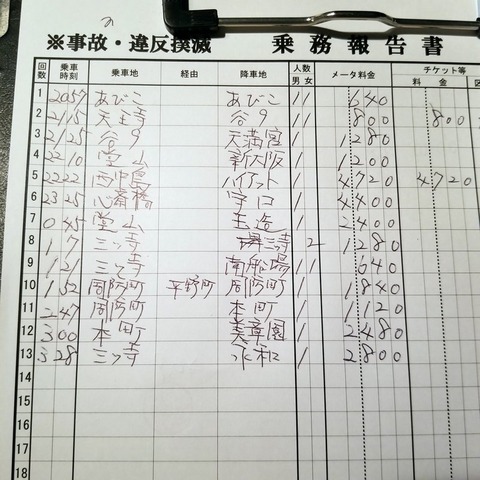 ※事故・違反撲滅 乗務報告書
回数 乗車時刻 乗車地 経由 降車地 人数 男 女 メータ料金 チケット等 料金 区
1 2057 あびこ あびこ 1 1 640
2 2115 天王寺 谷9 1 1 800 800
3 2125 谷9 天満宮 1 1 1280
4 2210 堂山 新大阪 1 1 1200
5 2222 西中島 ハイアット 1 1 4720 4720
6 2325 心斎橋 守口 1 4400
7 045 堂山 玉造 1 2400
8 1 7 三ッ寺 三ッ寺 2 1280
9 121 三ッ寺 南船場 1 1 640
10 152 周防町 平野町 周防町 1 1840
11 247 周防町 本町 1 1120
12 300 本町 美章園 1 2480
13 328 三ッ寺 1 2800
14
15
16
17
18